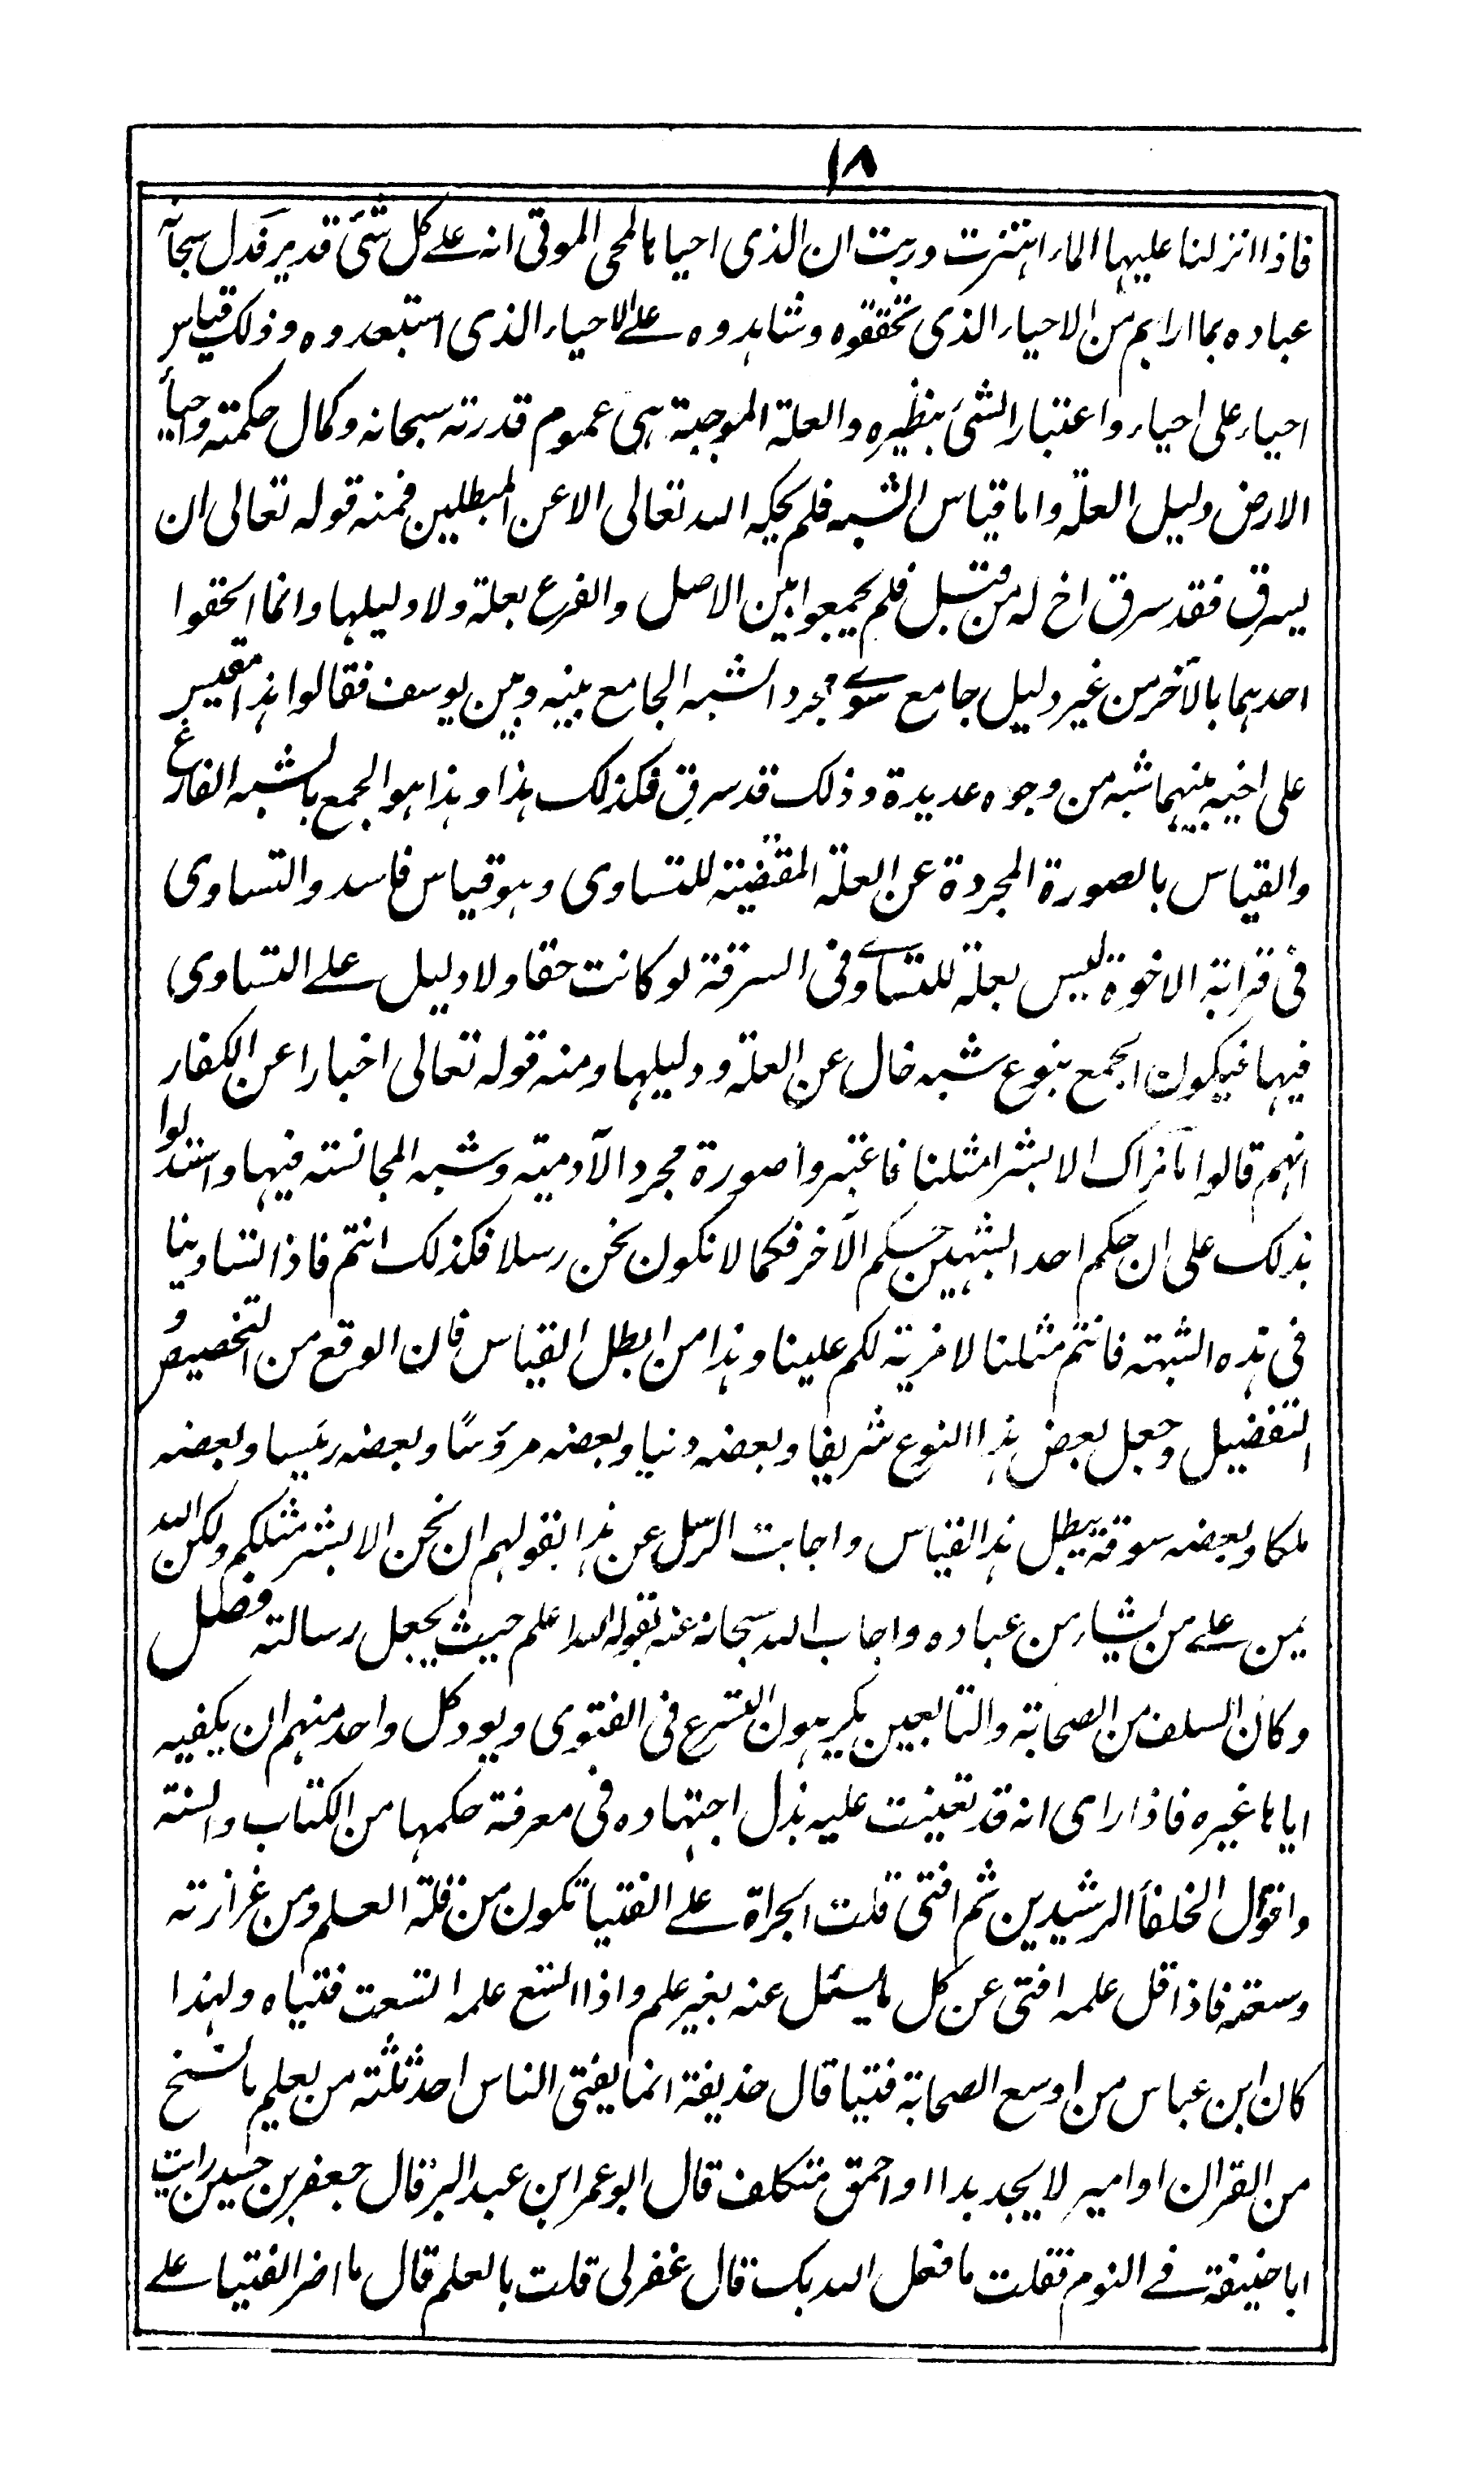 ١٨
فاذا انزلنا عليها الماء اهتزت وربت ان الذى احياها لمحى الموتى انه على كل شئ قدير فدل سبحانه
عباده بما اراهم من الاحياء الذى تحققوه وشاهدوه على الاحياء الذى استبعدوه وذلك قياس
احياء على احياء واعتبار الشئ بنظيره والعلة الموجبة هى عموم قدرته سبحانه وكمال حكمته واحياء
الارض دليل العلة واما قياس الشبه فلم يحكه الله تعالى الا عن المبطلين فمنه قوله تعالى ان
يسرق فقد سرق اخ له من قبل فلم يجمعوا بين الاصل والفرع بعلة ولا دليلها وانما الحقوا
احدهما بالآخر من غير دليل جامع سوى مجرد الشبه الجامع بينه وبين يوسف فقالوا هذا مقيس
على اخيه بينهما شبه من وجوه عديدة وذلك قد سرق فكذلك هذا وهذا هو الجمع بالشبه الفارغ
والقياس بالصورة المجردة عن العلة المقتضية للتساوى وهو قياس فاسد والتساوى
فى قرابة الاخوة ليس بعلة للتساوى فى السرقة لو كانت حقا ولا دليل على التساوى
فيها فيكون الجمع بنوع شبه خال عن العلة ودليلها ومنه قوله تعالى اخبارا عن الكفار
انهم قالوا ما نراك الا بشرا مثلنا فاعتبروا صورة مجرد الآدمية وشبه المجانسته فيها واستدلوا
بذلك على ان حكم احد الشبهين حكم الآخر فكما لا نكون نحن رسلا فكذلك انتم فاذا تساوينا
فى هذه الشبهته فانتم مثلنا لا مزية لكم علينا وهذا من ابطل القياس فان الوقع من التخصيص و
التفضيل وجعل بعض هذا النوع شريفا وبعضه دنيا وبعضه مرؤسًا وبعضه رئيسا وبعضه
ملكا وبعضه سوقة يبطل هذا القياس واجابت الرسل عن هذا بقولهم ان نحن الا بشر مثلكم ولكن الله
يمن على من يشاء من عباده واجاب الله سبحانه عنه بقوله الله اعلم حيث يجعل رسالته فصل
وكان السلف من الصحابة والتابعين يكرهون التسرع فى الفتوى ويود كل واحد منهم ان يكفيه
اياها غيره فاذا راى انه قد تعينت عليه بذل اجتهاده فى معرفة حكمها من الكتاب والسنة
واقوال الخلفأ الرشيدين ثم افتى قلت الجراة على الفتيا تكون من قلة العلم ومن غزارته
وسعته فاذا قل علمه افتى عن كل ما يسئل عنه بغير علم واذا اتسع علمه اتسعت فتياه ولهذا
كان ابن عباس من اوسع الصحابة فتيا قال حذيفة انما يفتى الناس احد ثلثته من يعلم ما نسخ
من القران او امير لا يجد بدا او احمق متكلف قال ابو عمر ابن عبد البر قال جعفر بن حسين رايت
ابا حنيفة فى النوم فقلت ما فعل الله بك قال غفر لى قلت بالعلم قال ما اضر الفتيا على